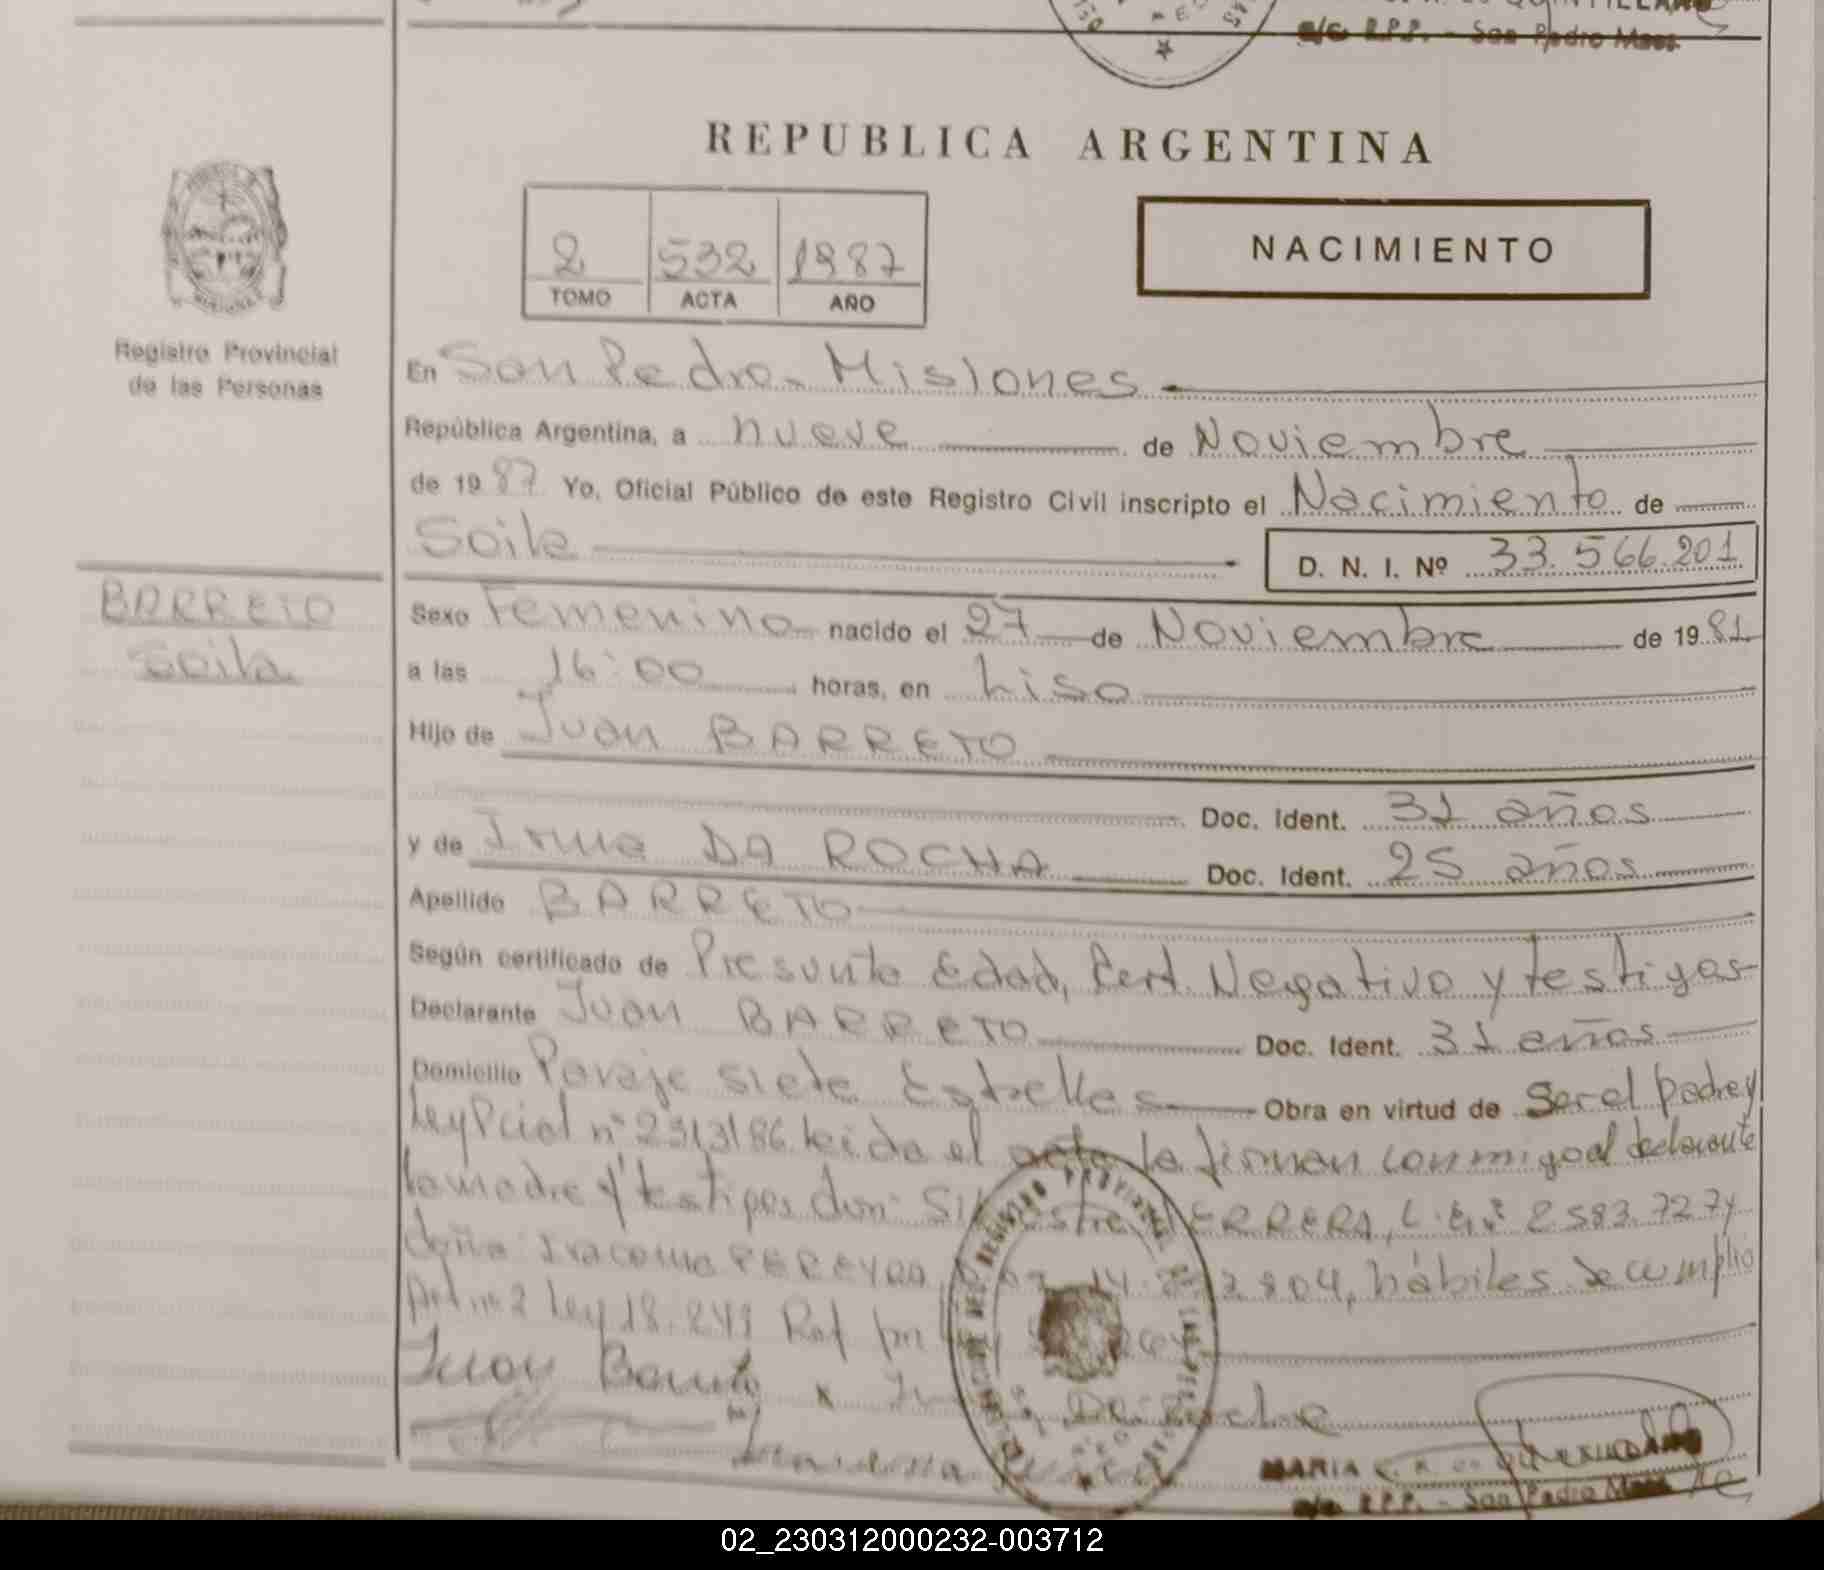 QUINTILLANO
a/c R.P.P. - San Pedro Mnes.
REPUBLICA ARGENTINA
2 532 1987
TOMO ACTA AÑO
NACIMIENTO
Registro Provincial
de las Personas
En San Pedro - Misiones
República Argentina, a nueve de Noviembre
de 1987 Yo, Oficial Público de este Registro Civil inscripto el Nacimiento de
Soila
D. N. I. Nº 33.566.201
BARRETO
Soila
Sexo Femenino nacido el 27 de Noviembre de 1981
a las 16:00 horas, en Liso
Hijo de Juan BARRETO
Doc. Ident. 31 años
y de Irma DA ROCHA Doc. Ident. 25 años
Apellido BARRETO
Según certificado de Presunta Edad, Cert. Negativo y testigos
Declarante Juan BARRETO Doc. Ident. 31 años
Domicilio Paraje Siete Estrellas Obra en virtud de Ser el padre y
Ley Pcial nº 2313/86. Leida el acta la firman conmigo el declarante
la madre y testigos don: HERRERA, L.E.Nº 2583.727 y
doña: Iracema PEREYRA 804, hábiles Se cumplió
Art. nº 2 Ley 18.249 Ref por
Juan
x Da Roche
MARIA
a/c R.P.P. - San Pedro Mnes
02_230312000232-003712